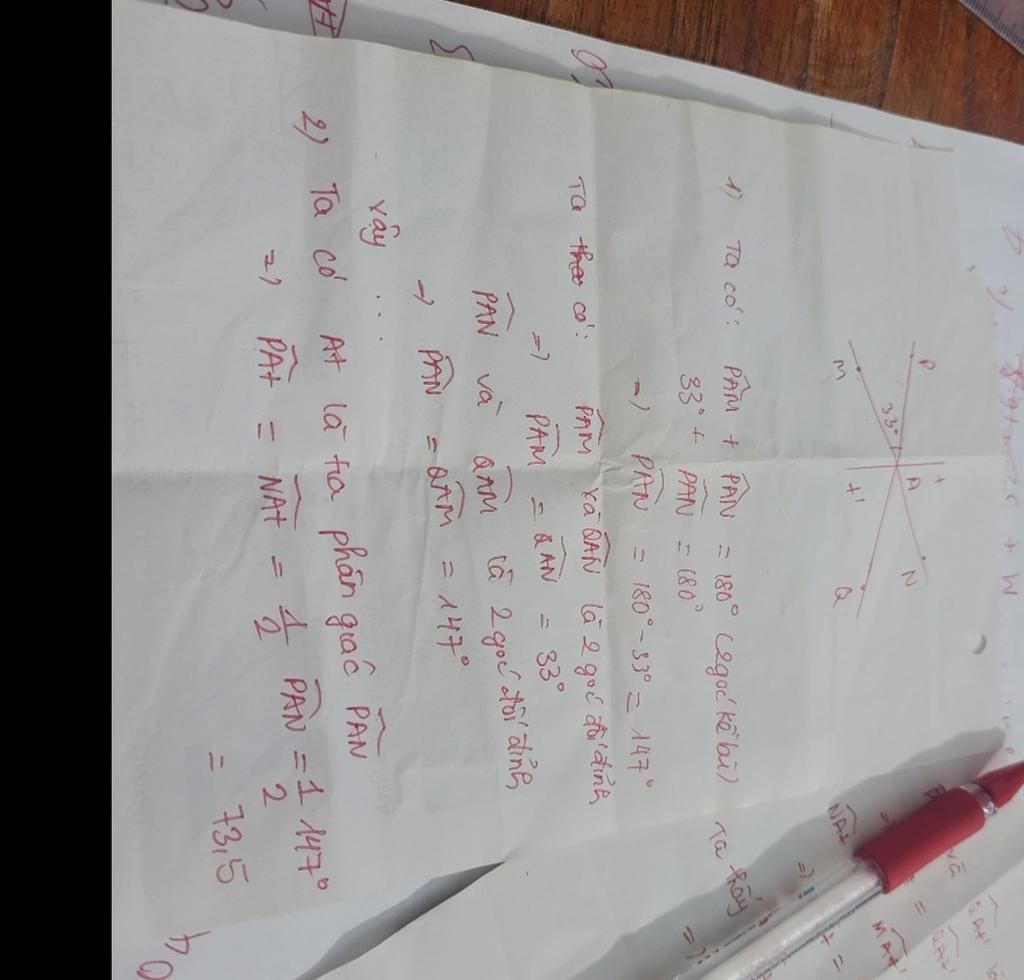 P
M
33°
A
t
t'
N
Q
1) Ta có: PÂM + PÂN = 180° (2 góc kề bù)
33° + PÂN = 180°
=) PÂN = 180° - 33° = 147°
Ta có: PÂM và QÂN là 2 góc đối đỉnh
=) PÂM = QÂN = 33°
PÂN và QÂM là 2 góc đối đỉnh
=) PÂN = QÂM = 147°
Vậy ...
2) Ta có At là tia phân giác PÂN
=) PÂt = NÂt = 1/2 PÂN = 1/2 147°
= 73,5
Ta thấy
=)
NÂt
=)
MÂt
và
QÂt'